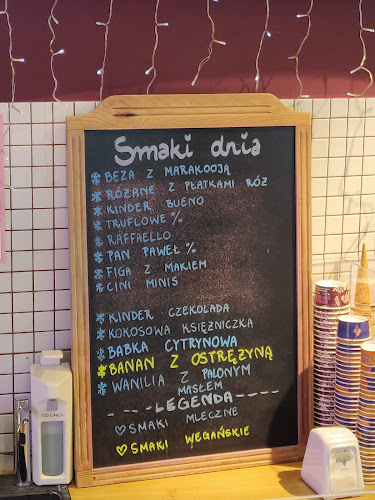 Smaki dnia
* BEZA Z MARAKOOJĄ
* RÓŻANE Z PŁATKAMI RÓŻ
* KINDER BUENO
* TRUFLOWE %
* RAFFAELLO
* PAN PAWEŁ %
* FIGA Z MAKIEM
* CINI MINIS
* KINDER CZEKOLADA
* KOKOSOWA KSIĘŻNICZKA
* BABKA CYTRYNOWA
* BANAN Z OSTRĘŻYNĄ
* WANILIA Z PALONYM
MASŁEM
- - - -LEGENDA- - - - -
♡ SMAKI MLECZNE
♡ SMAKI WĘGAŃSKIE